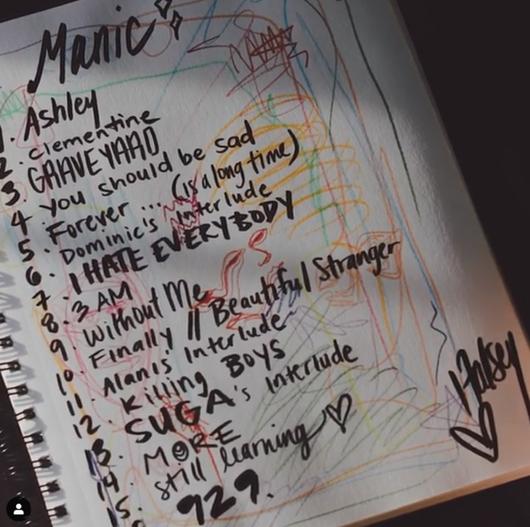 Manic
1 Ashley
2. clementine
3. GRAVEYARD
4 you should be sad
5. Forever ... (is a long time)
6. Dominic's Interlude
7. I HATE EVERYBODY
8. 3 AM
9. Without Me
10. Finally // Beautiful Stranger
11. Alanis' Interlude
12. Killing BOYS
13. SUGA's Interlude
14. MORE
15. still learning
929.
Halsey